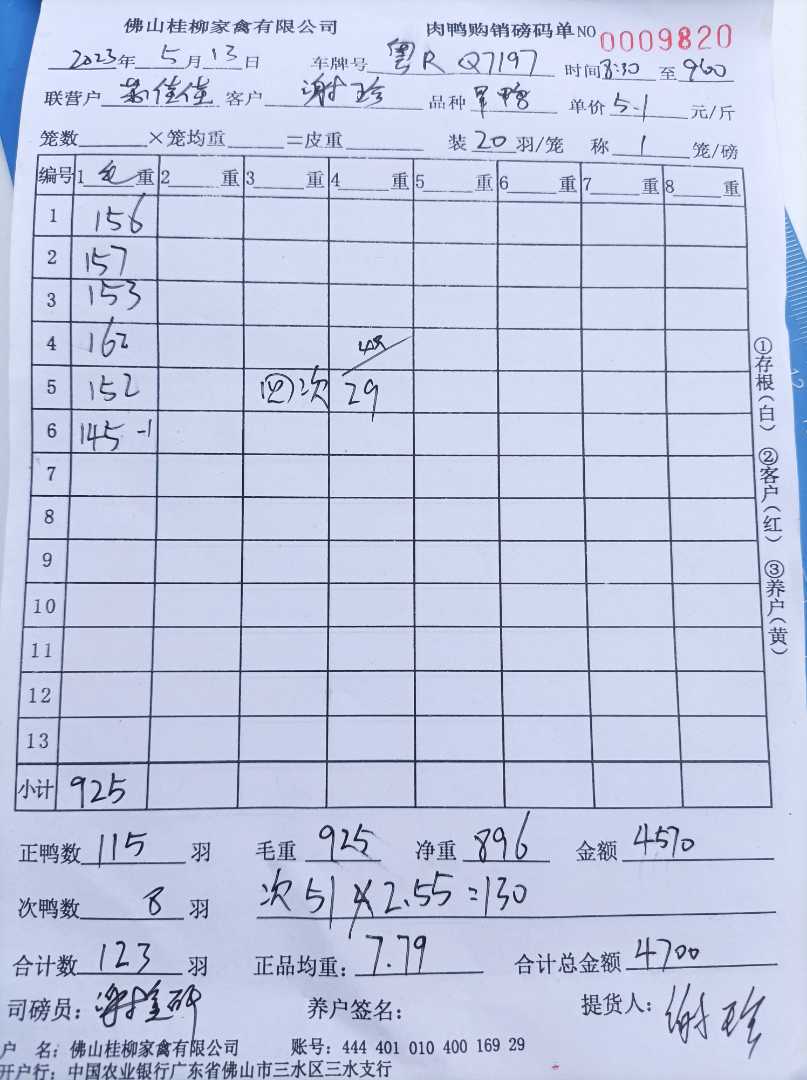 佛山桂柳家禽有限公司 肉鸭购销磅码单NO 0009820
2023年5月13日 车牌号 粤R Q7197 时间8:30至960
联营户 佳佳 客户 谢珍 品种 旱鸭 单价5.1元/斤
笼数 ×笼均重 =皮重 装20羽/笼 称1笼/磅
编号 1毛重 2 重 3 重 4 重 5 重 6 重 7 重 8 重
1 156
2 157
3 153
4 162
5 152 次 29
6 145 -1
7
8
9
10
11
12
13
小计 925
正鸭数115羽 毛重925 净重896 金额4570
次鸭数8羽 次51×2.55=130
合计数123羽 正品均重:7.79 合计总金额4700
司磅员: 养户签名: 提货人:谢珍
户 名:佛山桂柳家禽有限公司 账号:444 401 010 400 169 29
开户行:中国农业银行广东省佛山市三水区三水支行
①存根(白) ②客户(红) ③养户(黄)